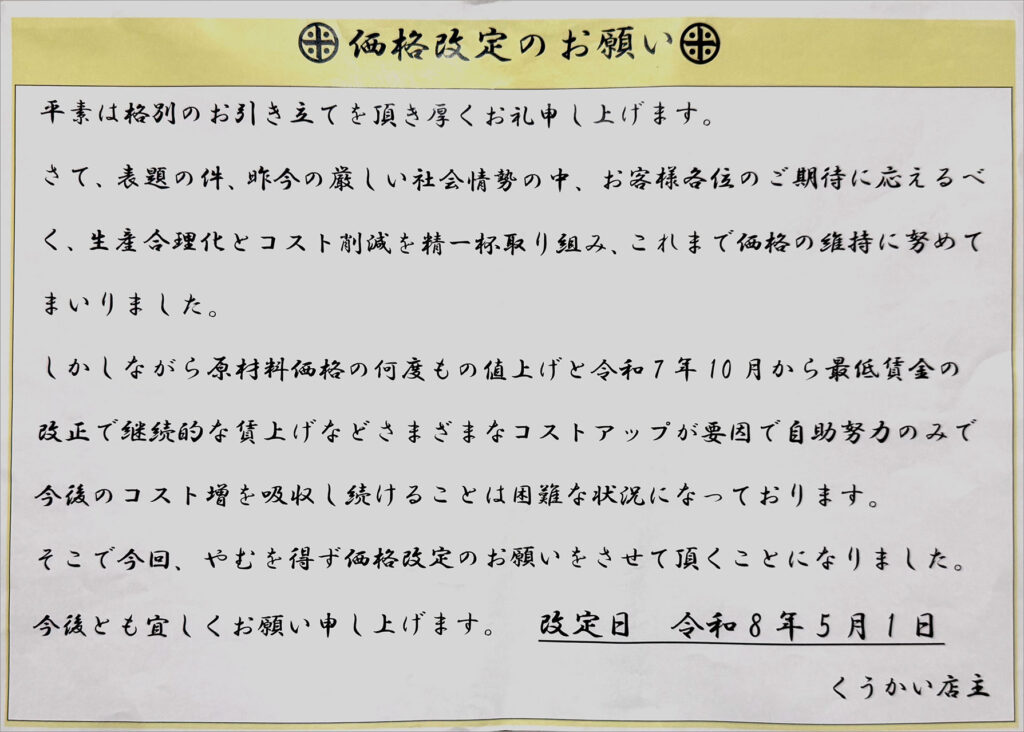 価格改定のお願い
平素は格別のお引き立てを頂き厚くお礼申し上げます。
さて、表題の件、昨今の厳しい社会情勢の中、お客様各位のご期待に応えるべ
く、生産合理化とコスト削減を精一杯取り組み、これまで価格の維持に努めて
まいりました。
しかしながら原材料価格の何度もの値上げと令和7年10月から最低賃金の
改正で継続的な賃上げなどさまざまなコストアップが要因で自助努力のみで
今後のコスト増を吸収し続けることは困難な状況になっております。
そこで今回、やむを得ず価格改定のお願いをさせて頂くことになりました。
今後とも宜しくお願い申し上げます。 改定日 令和8年5月1日
くうかい店主